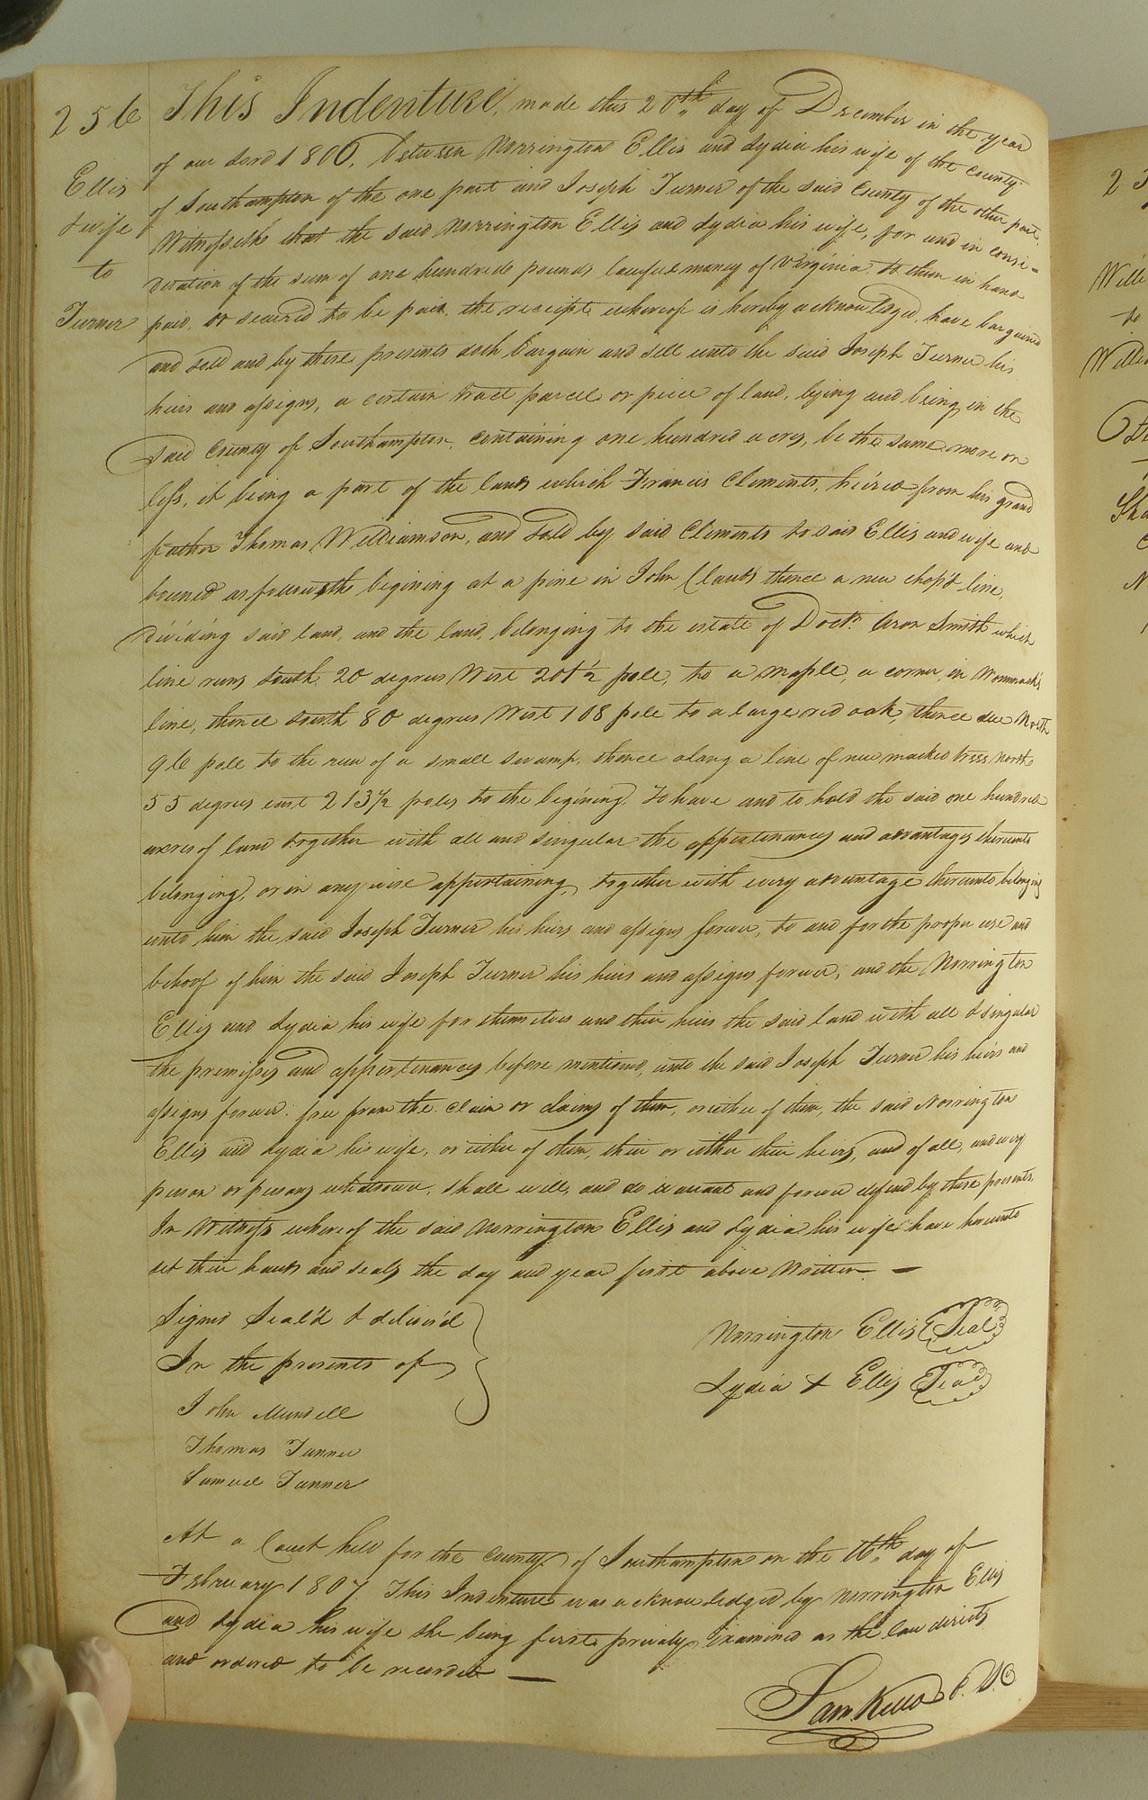 256
Ellis
& wife
to
Turner
This Indenture, made this 20th day of December in the year
of our Lord 1806, between Norrington Ellis and Lydia his wife of the county
of Southampton of the one part and Joseph Turner of the said County of the other part,
Witnesseth that the said Norrington Ellis and Lydia his wife, for and in consi=
deration of the sum of one hundride pounds lawful money of Virginia to them in hand
paid, or secured to be paid the receipt whereof is hereby acknowledged, have bargained
and sold and by these presents doth bargain and sell unto the said Joseph Turner his
heirs and assigns, a certain tract parcel or piece of land, lying and being in the
said County of Southampton, containing one hundred acres, be the same more or
less, it being a part of the lands which Francis Clements, heired from his grand
father Thomas Williamson, and sold by said Clements to said Ellis and wife and
bouned as followeth begining at a pine in John Clauds thence a new chopt line,
dividing said land, and the land, belonging to the estate of Doctr. Aron Smith which
line runs South 20 degrees West 201½ pole, to a maple, a corner in Wommack's
line, thence South 80 degrees West 108 pole to a large red oak, thence due North
96 pole to the run of a small swamp, thence along a line of new marked trees North
55 degrees east 213½ poles to the begining. To have and to hold the said one hundred
acres of land together with all and singular the appertenances and advantages thereunto
belonging, or in any wise appertaining, together with every advantage thereunto belonging
unto him the said Joseph Turner his heirs and assigns forever, to and for the proper use and
behoof of him the said Joseph Turner his heirs and assigns forever, and the Norrington
Ellis and Lydia his wife for themselves and their heirs the said land with all & singular
the premises and appertenances before mentioned, unto the said Joseph Turner his heirs and
assigns forever. free from the claim or claims of them, or either of them, the said Norrington
Ellis and Lydia his wife, or either of them, their or either their heirs, and of all, and every
person or persons whatsoever, shall will, and do warrant and forever defend by these presents.
In Witness whereof the said Norrington Ellis and Lydia his wife have hereunto
set their hands and seals the day and year first above Written —
Signed Seal'd & deliver'd
In the presents of
Norrington Ellis Seal
Lydia + Ellis Seal
John Mundell
Thomas Turner
Samuel Turner
At a Court held for the county of Southampton on the 16th day of
February 1807 This Indenture was acknowledged by Norrington Ellis
and Lydia his wife she being first privily Examined as the law directs
and ordered to be recorded —
Sam. Kello C. S. C
23
to